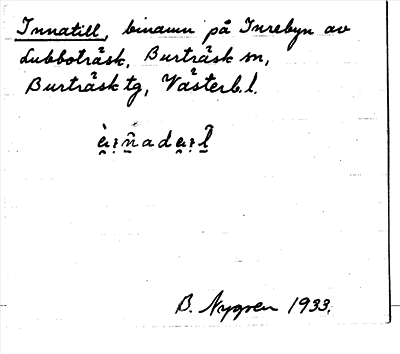 Innatill, binamn på Inrebyn av
Lubboträsk, Burträsk sn,
Burträsk tg, Västerb.l.
B. Nygren 1933.